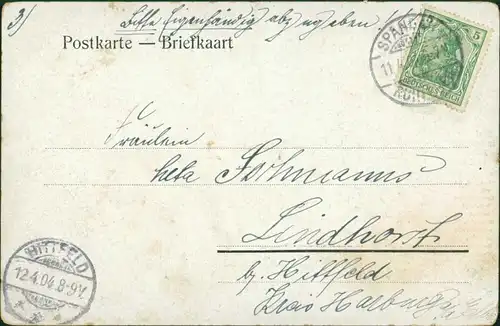 3) Bitte Eigenhändig abzugeben
Postkarte — Briefkaart
5
DEUTSCHES REICH
Fräulein
Lindhorst
b/ Hittfeld
Kreis Harburg
HITTFELD
12.4.04.8-9V.